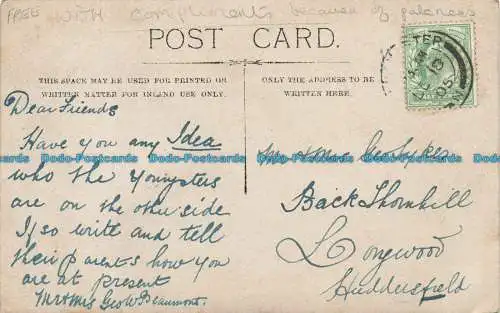 FREE WITH compliments because of paleness
POST CARD.
THIS SPACE MAY BE USED FOR PRINTED OR
WRITTEN MATTER FOR INLAND USE ONLY.
ONLY THE ADDRESS TO BE
WRITTEN HERE.
Dear Friends
Have you any Idea
who the Youngsters
are on the other side
If so write and tell
their parents how you
are at present
Mr & Mrs Geo W Beaumont.
Mr & Mrs Geo Sykes
Back Thornhill
Longwood
Huddersfield
Dodo-Postcards Dodo-Postcards Dodo-Postcards Dodo-Postcards Dodo-Postcards